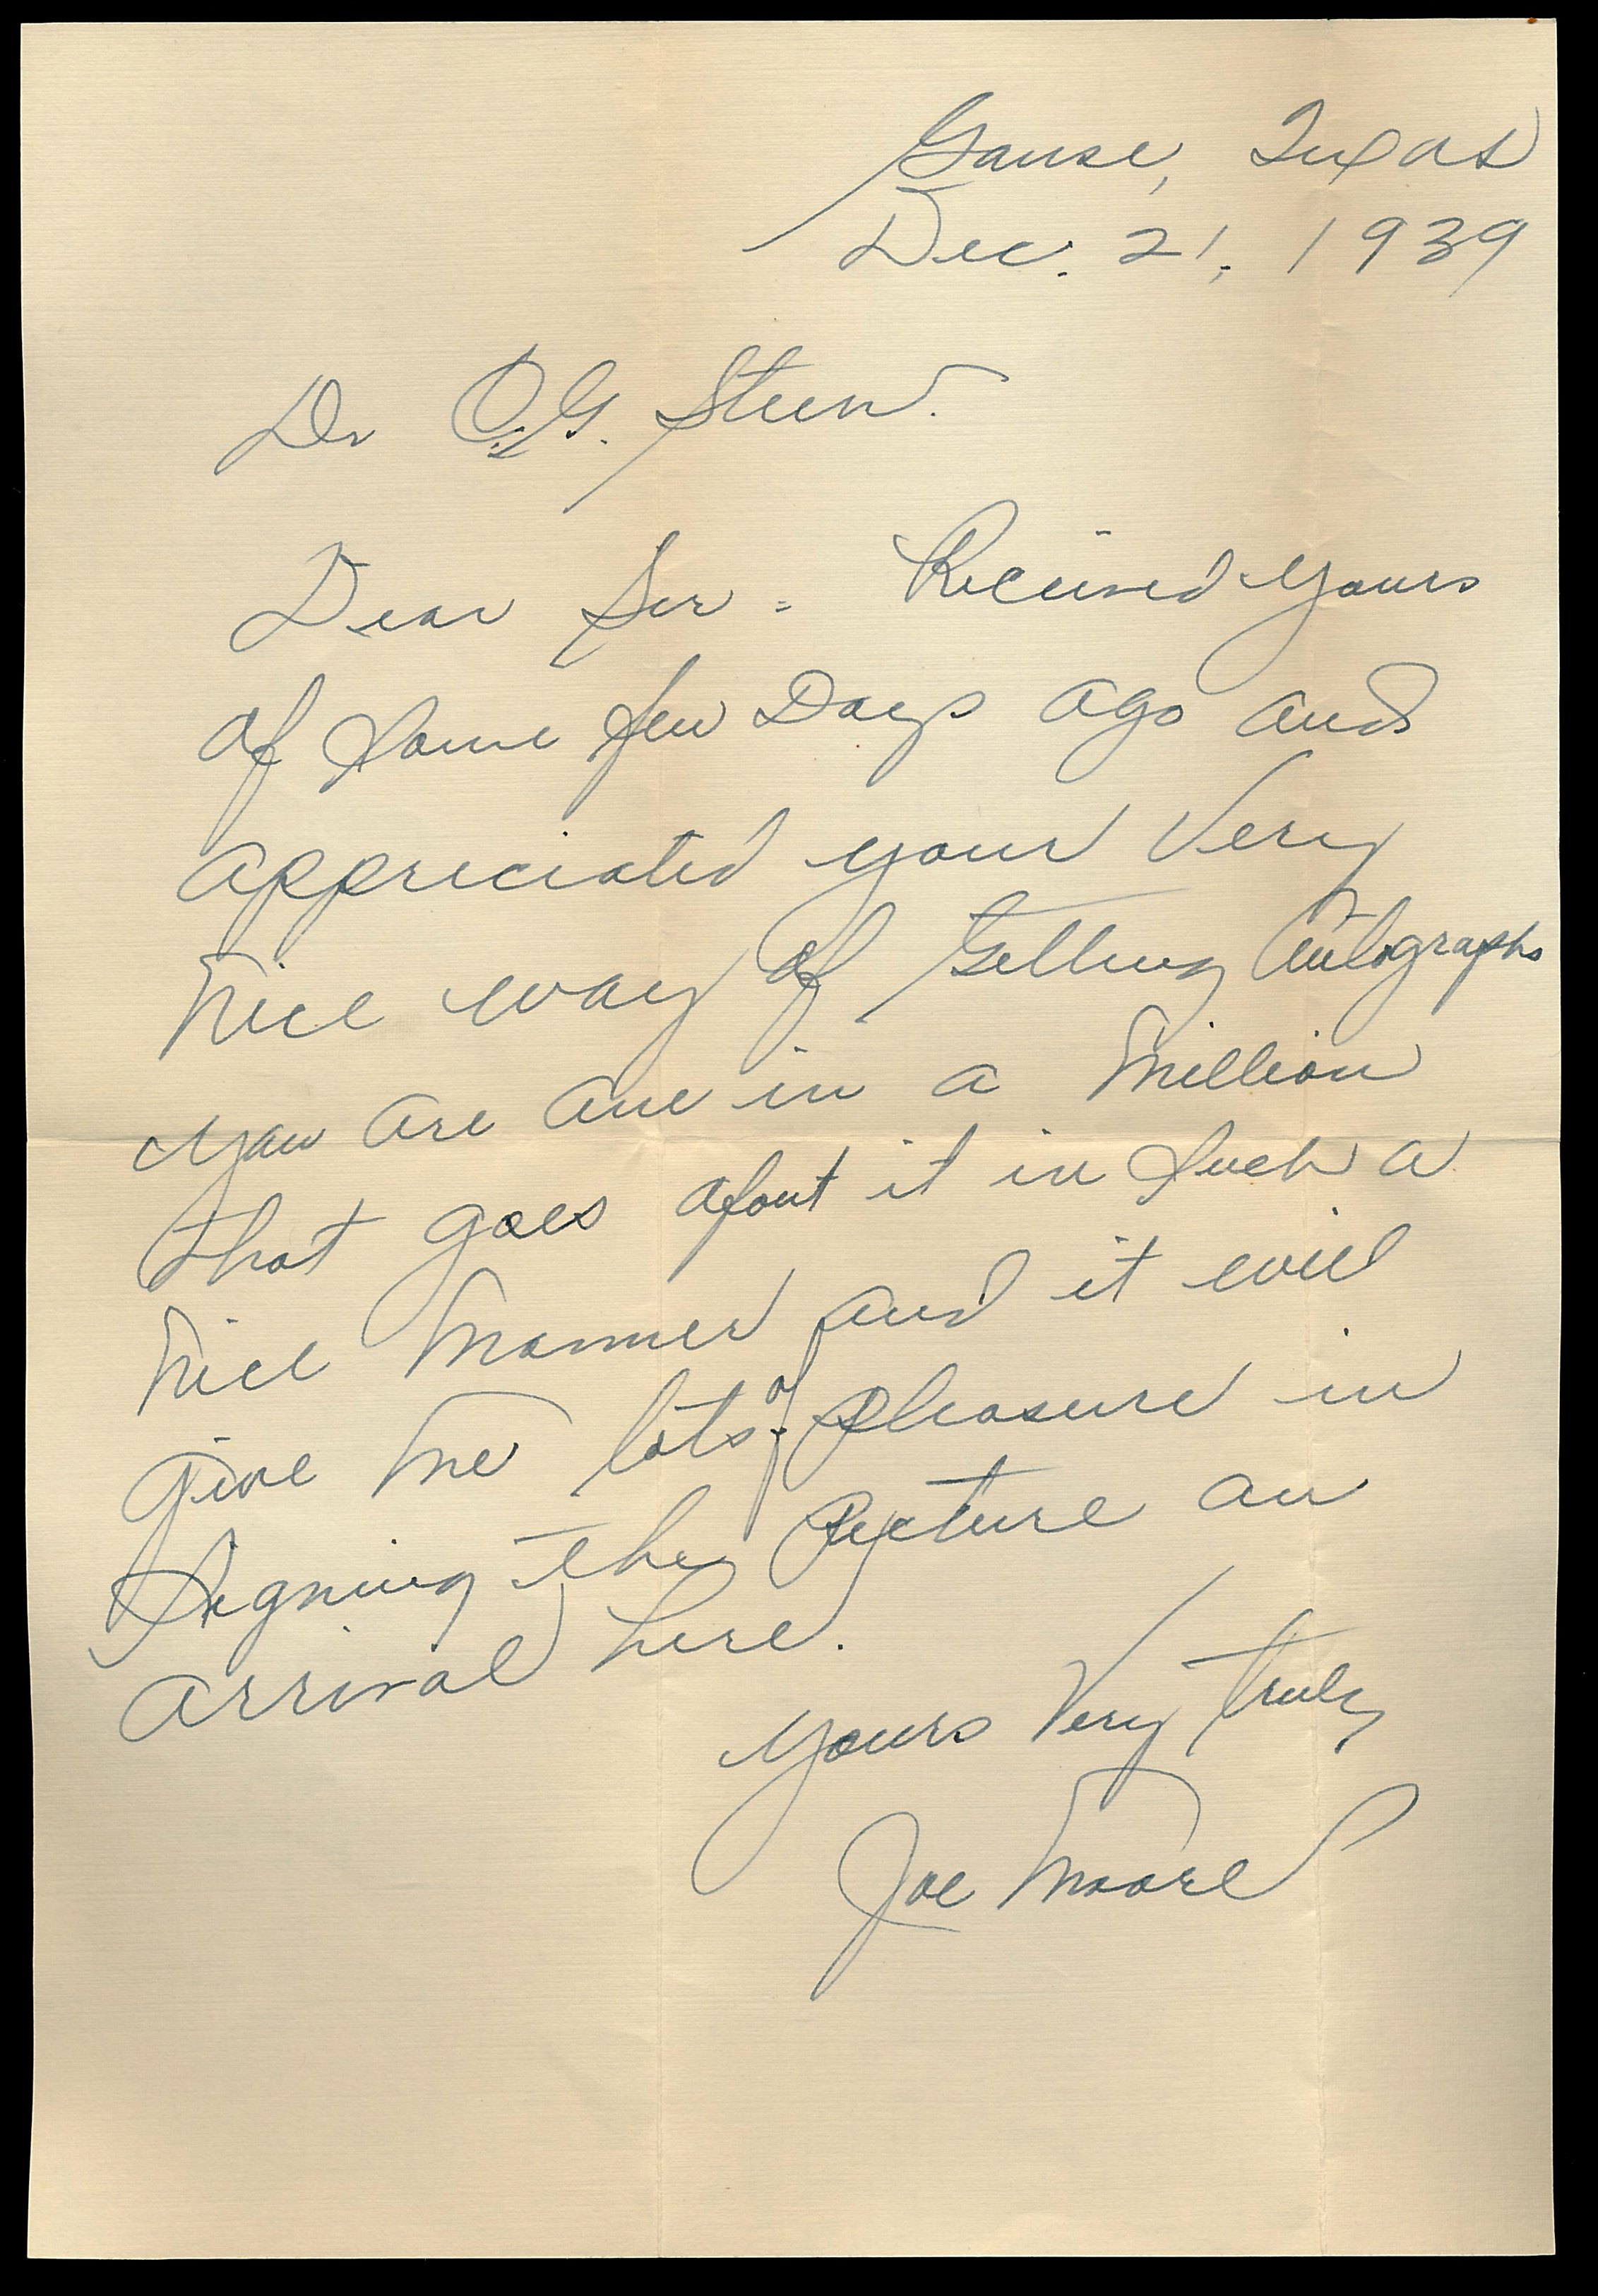 Gause, Texas
Dec. 21, 1939
Dr O.G. Steen.
Dear Sir = Received yours
of Some few Days ago and
appreciated your Very
nice way of Getting Autographs
you are one in a million
that goes about it in Such a
nice manner and it will
give me lots of pleasure in
Signing the Picture on
arrival here.
yours Very truly
Joe Moore